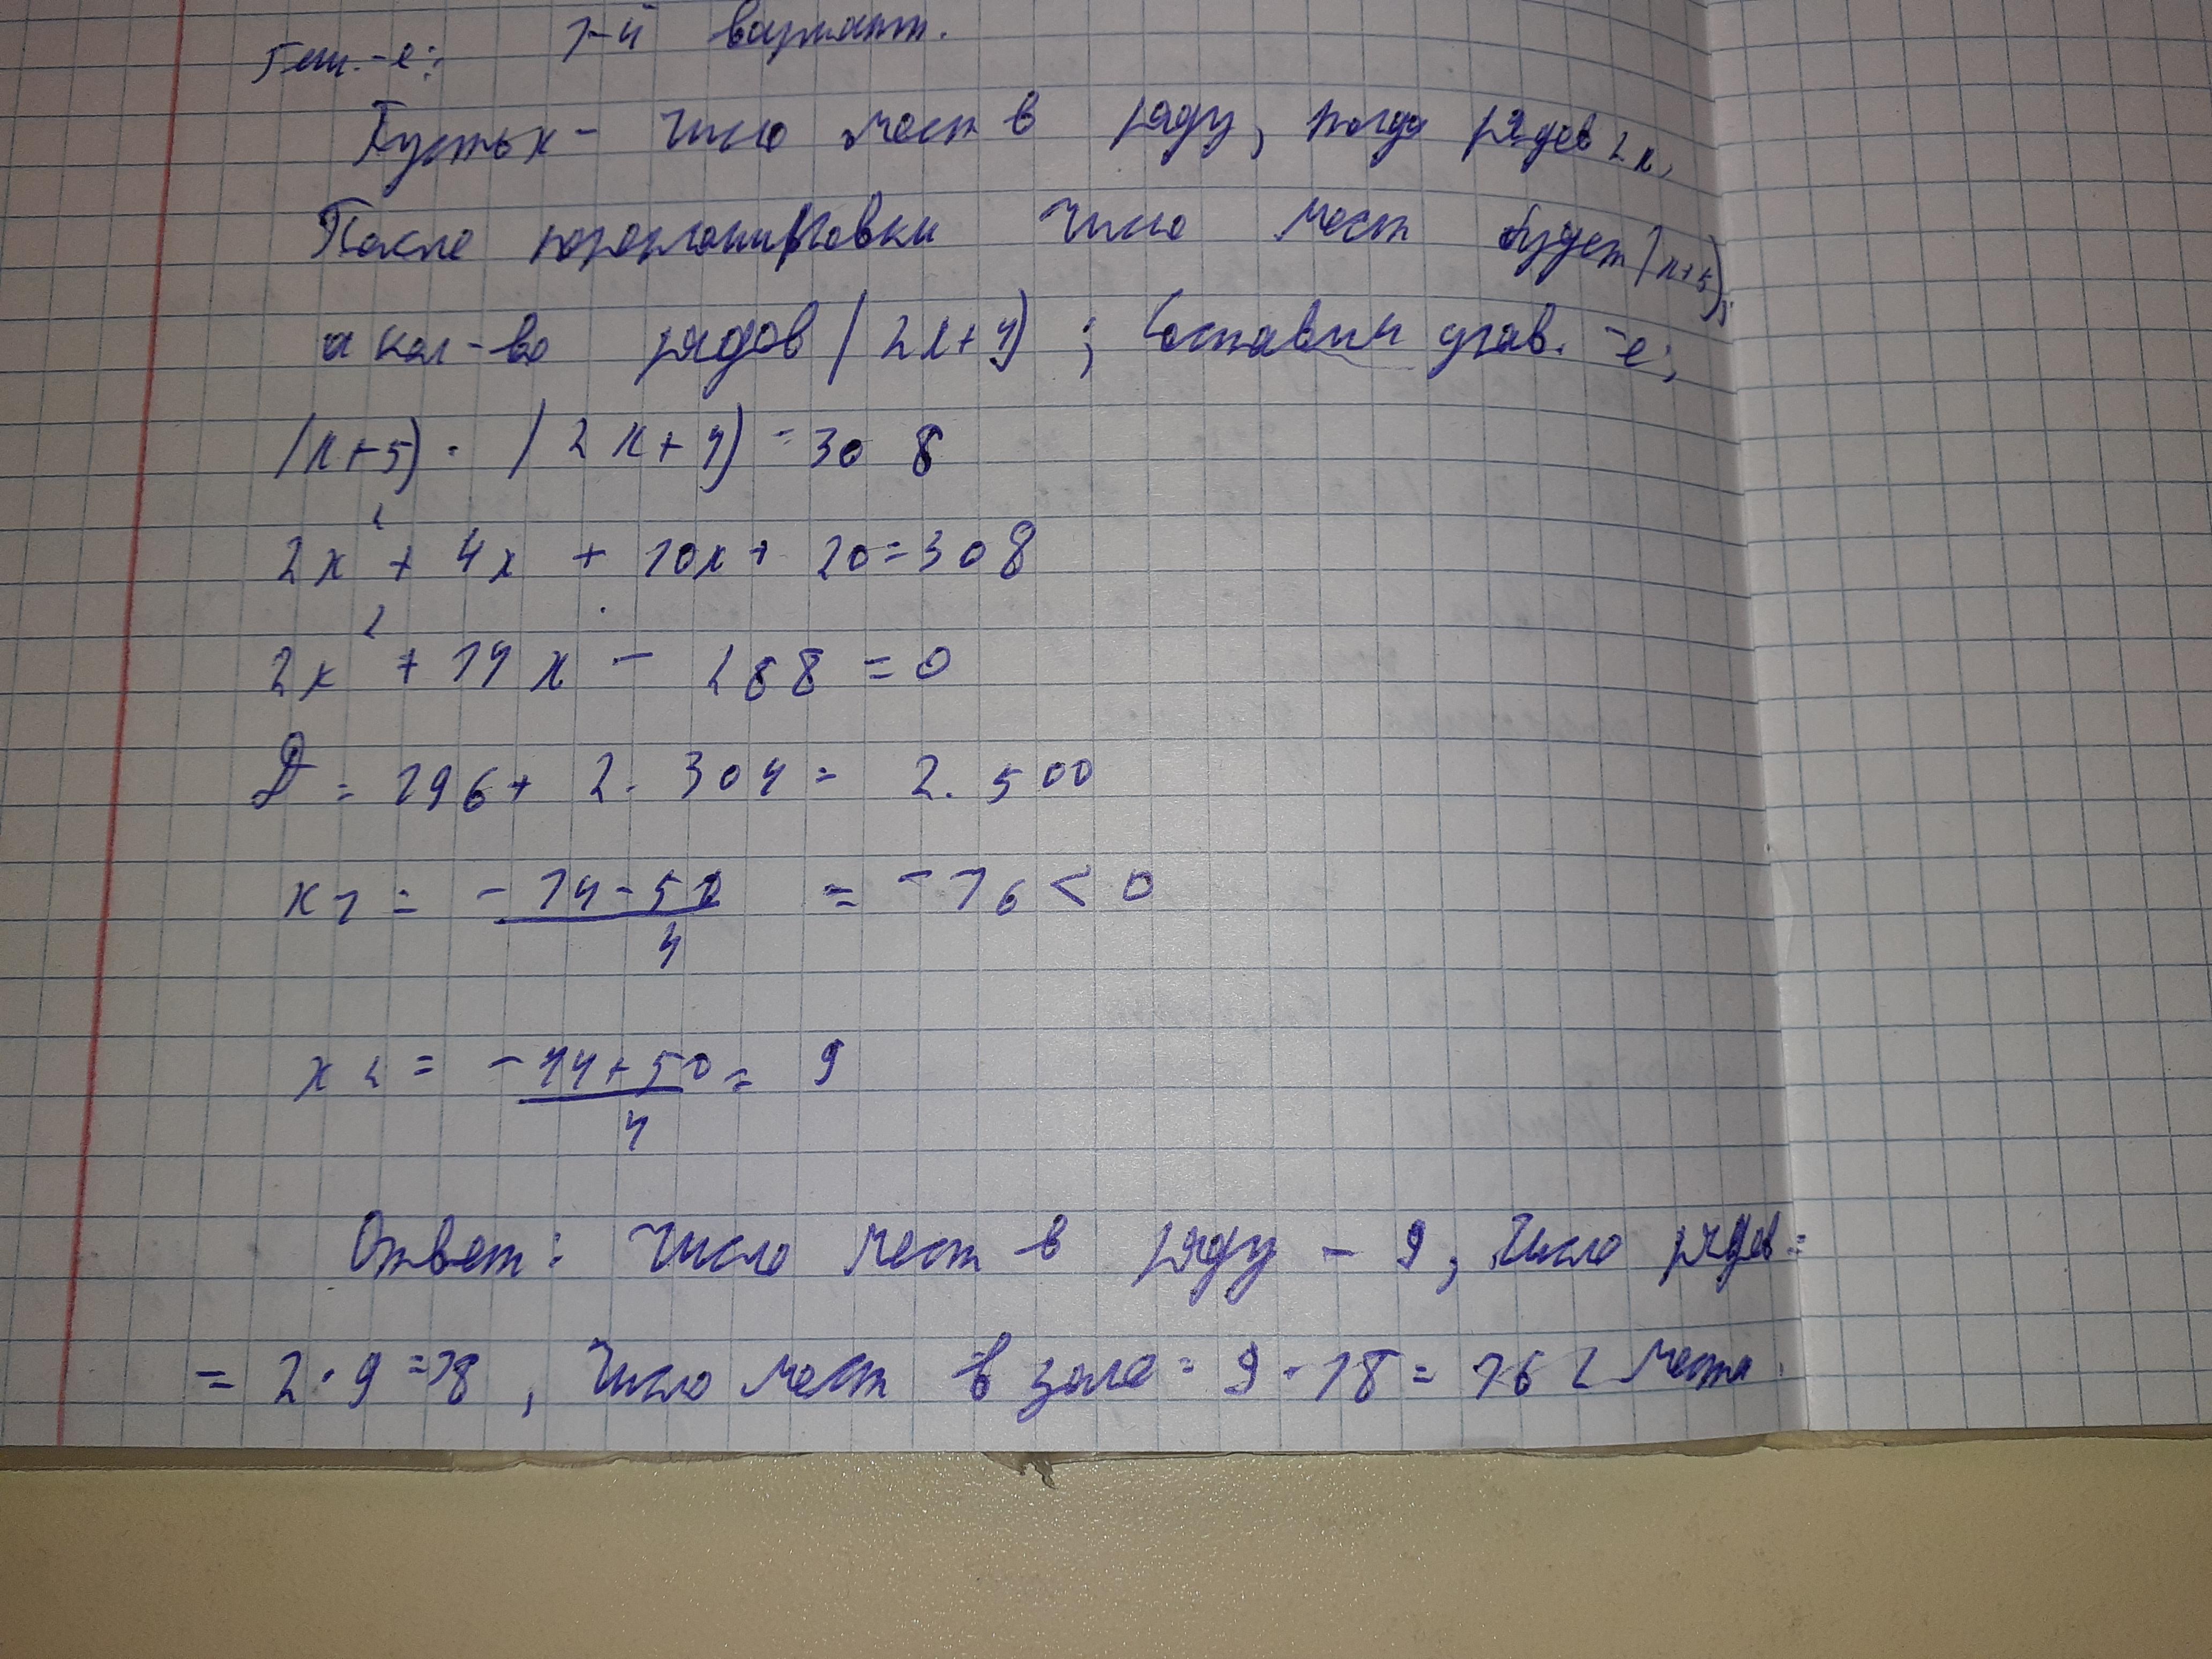 Реш.-е: 1-й вариант.
Пусть x - число мест в ряду, тогда рядов 2x,
После перепланировки число мест будет (x+5),
а кол-во рядов (2x+4); Составим урав.-е;
(x+5) · (2x+4) = 308
2x² + 4x + 10x + 20 = 308
2x² + 14x - 288 = 0
D = 196 + 2.304 = 2.500
x1 = (-14-50)/4 = -16 < 0
x2 = (-14+50)/4 = 9
Ответ: число мест в ряду - 9, число рядов =
= 2·9 = 18, число мест в зале = 9·18 = 162 места.